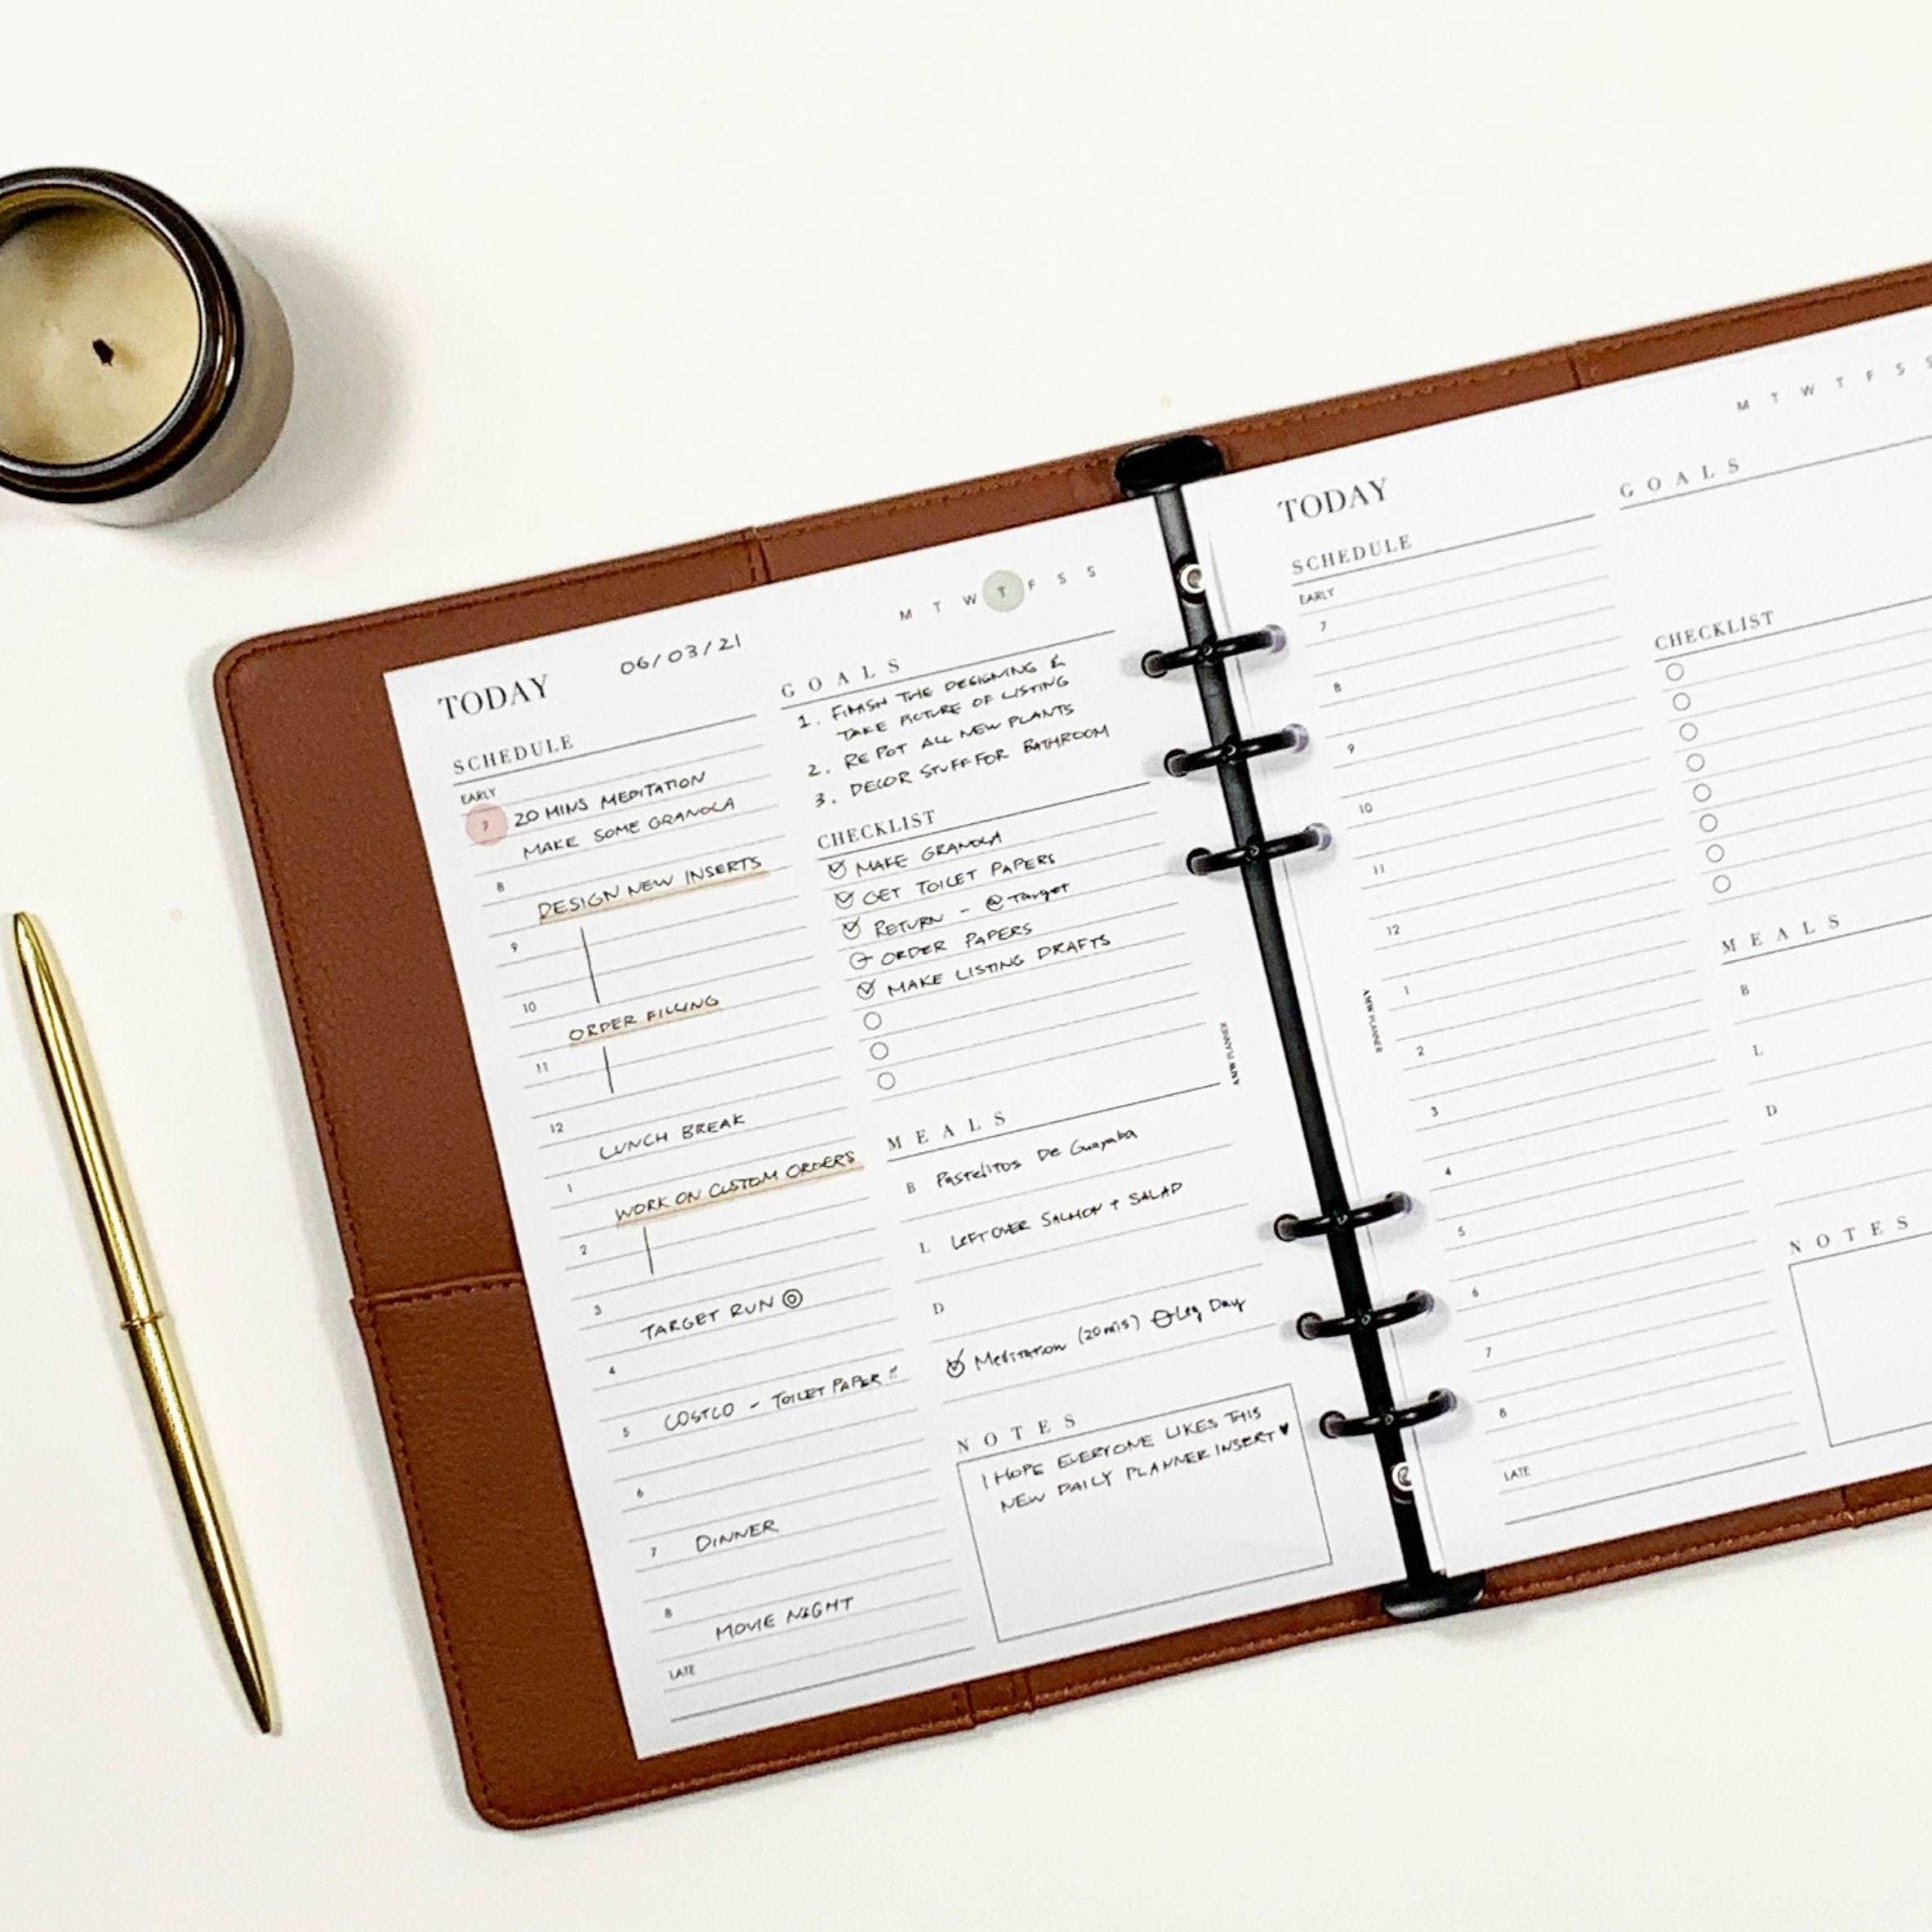 TODAY
06/03/21
M T W T F S S
SCHEDULE
EARLY
7 20 MINS MEDITATION
MAKE SOME GRANOLA
8
DESIGN NEW INSERTS
9
10
ORDER FILLING
11
12
LUNCH BREAK
1
WORK ON CUSTOM ORDERS
2
3
TARGET RUN
4
5 COSTCO - TOILET PAPER
6
7 DINNER
8
MOVIE NIGHT
LATE
GOALS
1. FINISH THE DESIGNING &
TAKE PICTURE OF LISTING
2. REPOT ALL NEW PLANTS
3. DECOR STUFF FOR BATHROOM
CHECKLIST
MAKE GRANOLA
GET TOILET PAPERS
RETURN - @Target
ORDER PAPERS
MAKE LISTING DRAFTS
MEALS
B Pastelitos De Guayaba
L LEFTOVER SALMON + SALAD
D
Meditation (20mis) Leg Day
NOTES
I HOPE EVERYONE LIKES THIS
NEW DAILY PLANNER INSERT ♥
AMW PLANNER
TODAY
M T W T F S S
SCHEDULE
EARLY
7
8
9
10
11
12
1
2
3
4
5
6
7
8
LATE
GOALS
CHECKLIST
MEALS
B
L
D
NOTES
AMW PLANNER